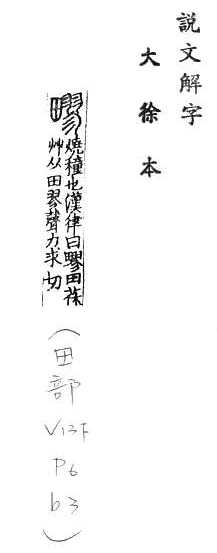 說文解字
大徐本
疁燒穜也漢律曰疁田茠
艸从田翏聲力求切
(田部V13下P6b3)